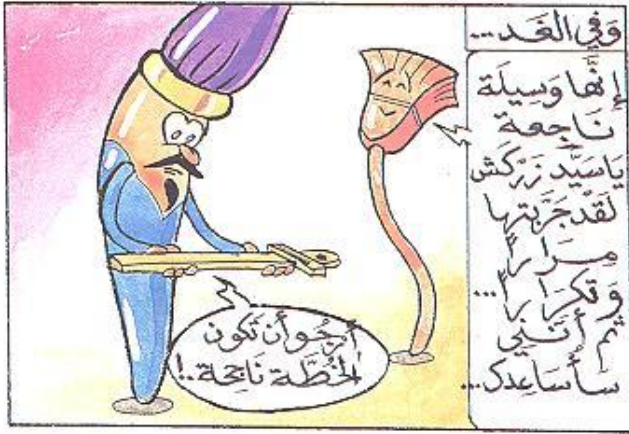 وَفِي الغَد...
إِنَّهَا وَسِيلَة
نَاجِعَة
يَا سَيِّد زَرْكَش
لَقَدْ جَرَّبتهَا
مِرَاراً
وَتَكرَاراً...
ثُم أَنَّنِي
سَأسَاعِدك...
أَرجُو أَن تَكُون
الخُطَّة نَاجِحَة..!